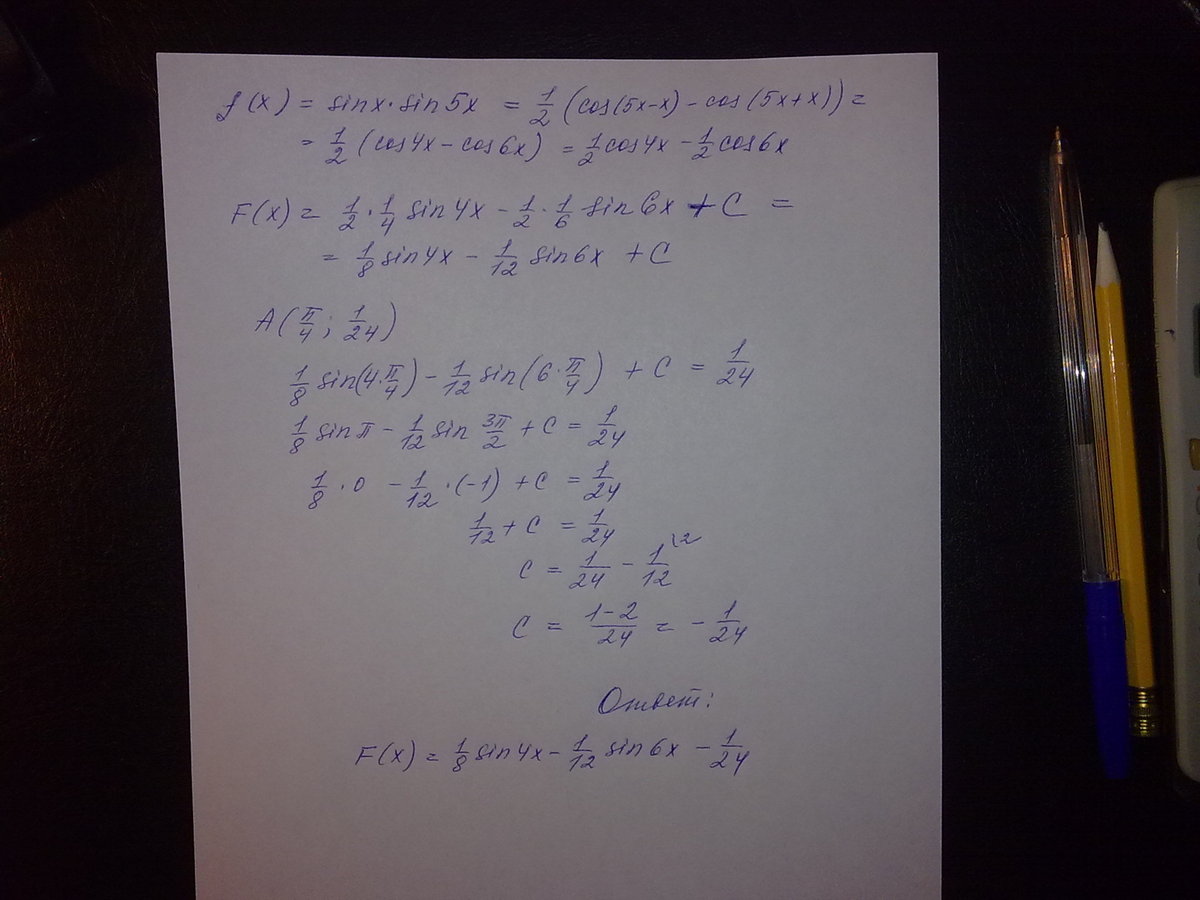 f(x) = sinx·sin5x = 1/2 (cos(5x-x) - cos(5x+x)) =
= 1/2 (cos4x - cos6x) = 1/2 cos4x - 1/2 cos6x
F(x) = 1/2 · 1/4 sin4x - 1/2 · 1/6 sin6x + C =
= 1/8 sin4x - 1/12 sin6x + C
A(π/4; 1/24)
1/8 sin(4·π/4) - 1/12 sin(6·π/4) + C = 1/24
1/8 sinπ - 1/12 sin 3π/2 + C = 1/24
1/8 · 0 - 1/12 · (-1) + C = 1/24
1/12 + C = 1/24
C = 1/24 - 1/12 \2
C = (1-2)/24 = - 1/24
Ответ:
F(x) = 1/8 sin4x - 1/12 sin6x - 1/24